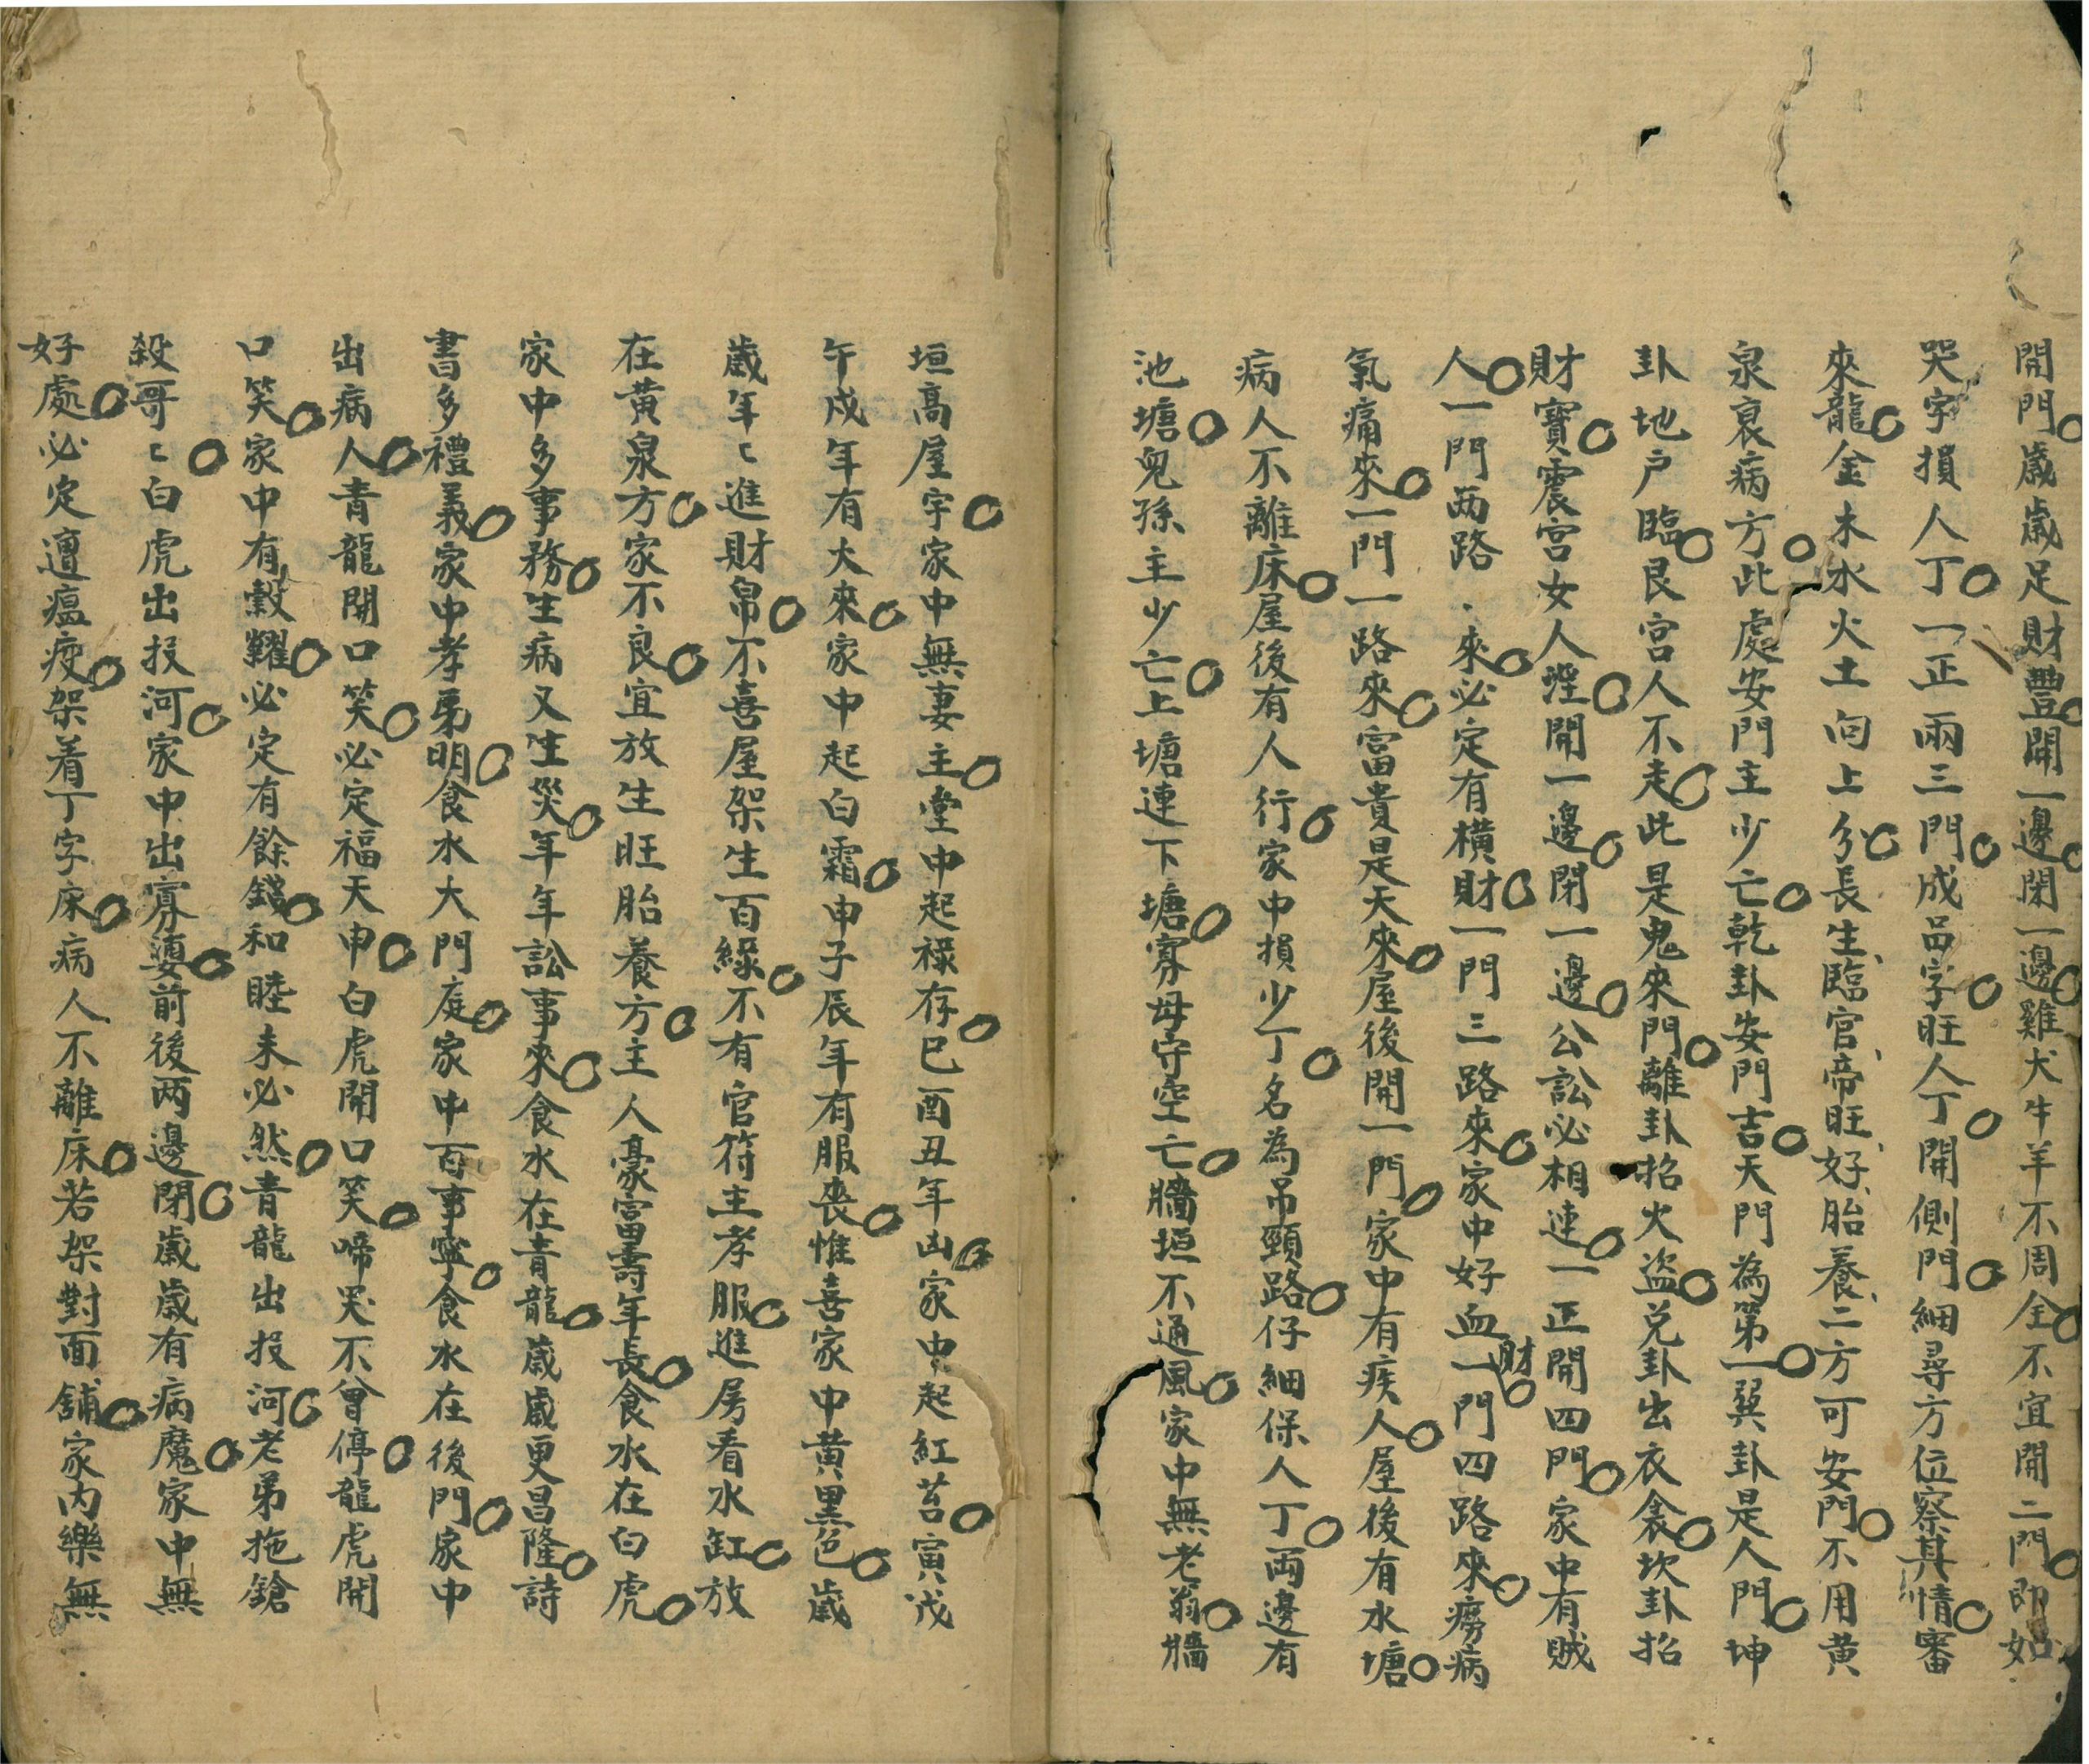 開門歲歲足財豐開一邊閉一邊雞犬牛羊不周全不宜開二門即如
哭字損人丁一正兩三門成品字旺人丁開側門細尋方位察其情審
來龍金木水火土向上分長生臨官帝旺好胎養二方可安門不用黄
泉衰病方此處安門主少亡乾卦安門吉天門為第一巽卦是人門坤
卦地户臨艮宫人不走此是鬼來門離卦招火盗兑卦出衣食坎卦招
財寳震宫女人婬開一邊閉一邊公訟必相連一正開四門家中有賊
人一門两路來必定有橫財一門三路來家中好血財一門四路來癆病
氣痛來一門一路來富貴是天來屋後開一門家中有疾人屋後有水塘
病人不離床屋後有人行家中損少丁名為吊頸路仔細保人丁両邊有
池塘兒孫主少亡上塘連下塘寡母守空亡牆垣不通風家中無老翁牆
垣高屋宇家中無妻主堂中起祿存巳酉丑年凶家中起紅苔寅戌
午戍年有大來家中起白霜申子辰年有服丧惟喜家中黄黑色歲
歲年〻進財帛不喜屋架生百綠不有官符主孝服進房看水缸放
在黄泉方家不良宜放生旺胎養方主人豪富壽年長食水在白虎
家中多事務生病又生災年年訟事來食水在青龍歲歲更昌隆詩
書多禮義家中孝弟明食水大門庭家中百事寧食水在後門家中
出病人青龍開口笑必定福天申白虎開口笑啼哭不曾停龍虎開
口笑家中有穀糶必定有餘錢和睦未必然青龍出投河老弟拖鎗
殺哥〻白虎出投河家中出寡婆前後两邊閉歲歲有病魔家中無
好處必定遭瘟疫架着丁字床病人不離床若架對面舖家内樂無